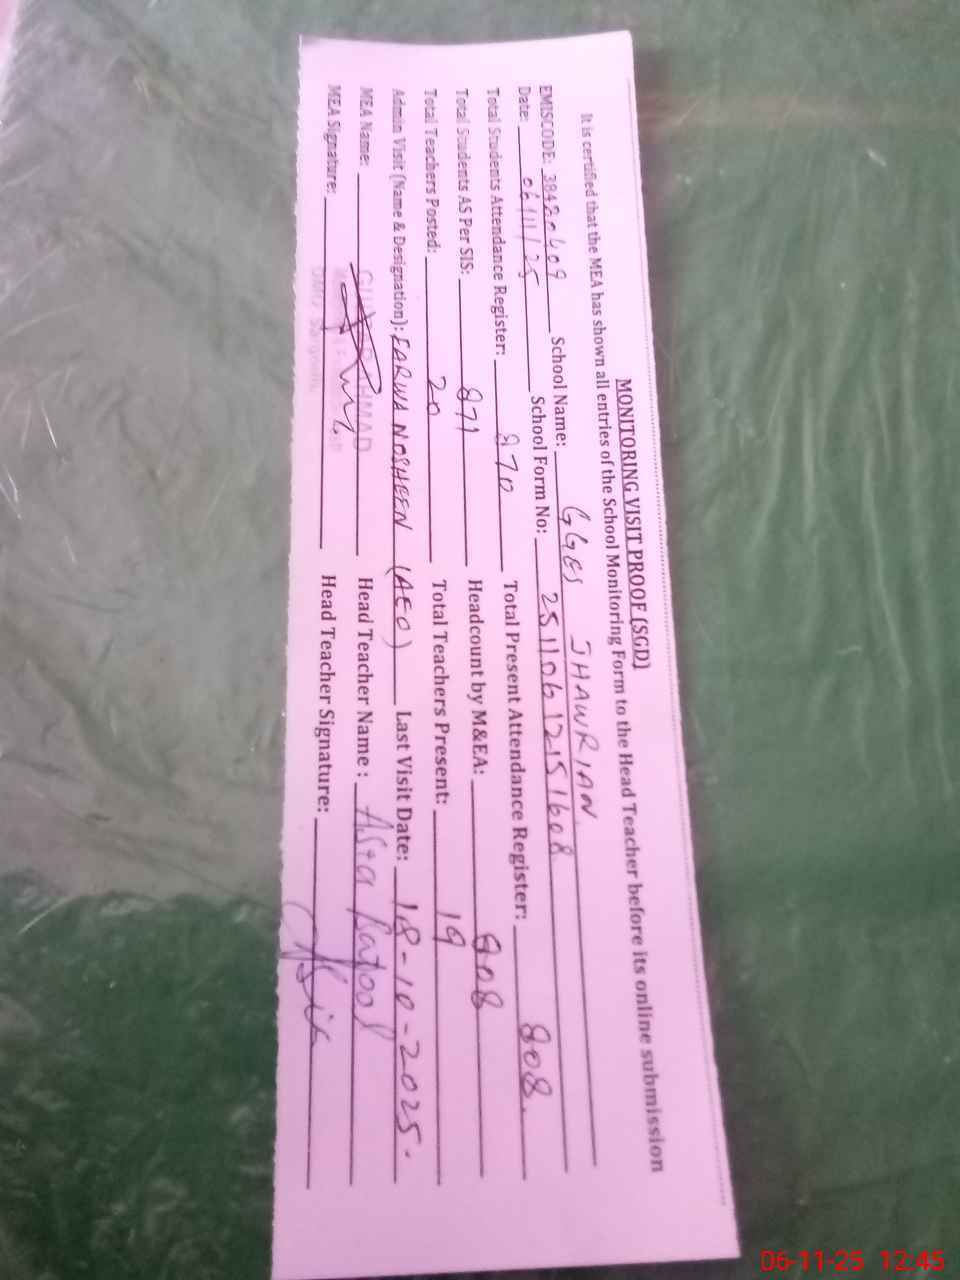 MONITORING VISIT PROOF [SGD]
It is certified that the MEA has shown all entries of the School Monitoring Form to the Head Teacher before its online submission
EMISCODE: 38420409 School Name: GGES JHAWRIAN
Date: 06/11/25 School Form No: 25110612151608
Total Students Attendance Register: 870 Total Present Attendance Register: 808.
Total Students AS Per SIS: 871 Headcount by M&EA: 808
Total Teachers Posted: 20 Total Teachers Present: 19
Admin Visit (Name & Designation): FARWA NOSHEEN (AEO) Last Visit Date: 18-10-2025.
MEA Name: Head Teacher Name: Batool
MEA Signature: Head Teacher Signature:
06-11-25 12:45